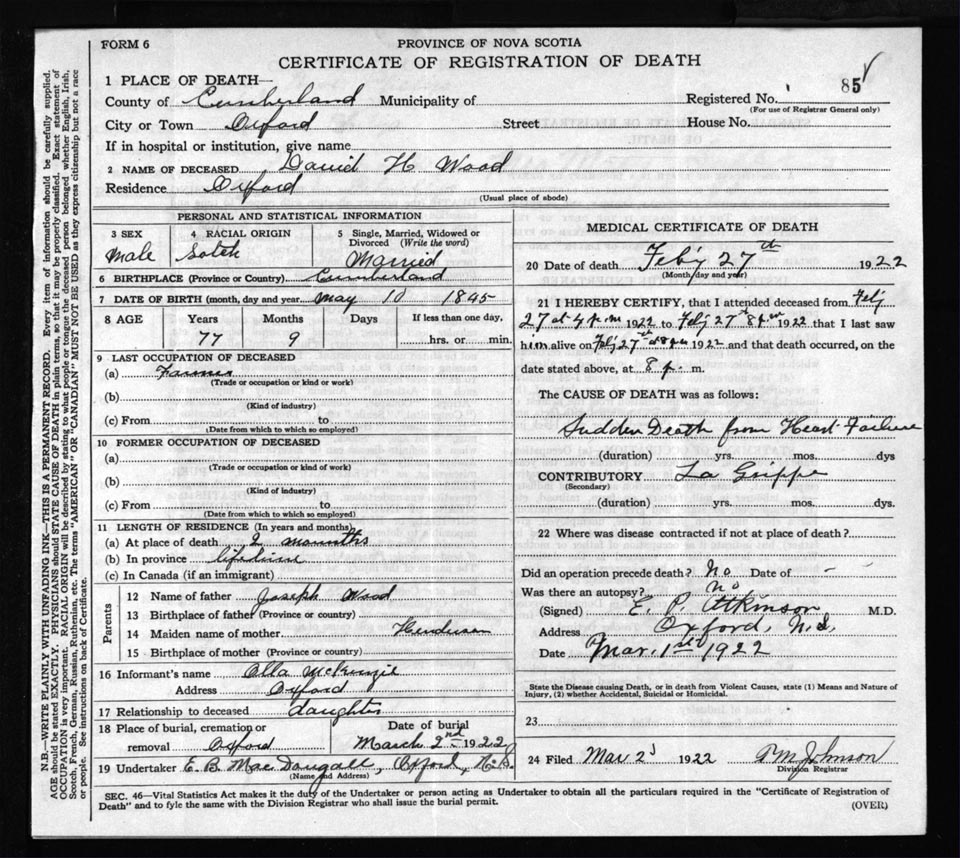 FORM 6
PROVINCE OF NOVA SCOTIA
CERTIFICATE OF REGISTRATION OF DEATH
1 PLACE OF DEATH—
County of Cumberland Municipality of
Registered No. 85
(For use of Registrar General only)
City or Town Oxford Street House No.
If in hospital or institution, give name
2 NAME OF DECEASED David H Wood
Residence Oxford
(Usual place of abode)
PERSONAL AND STATISTICAL INFORMATION
3 SEX
male
4 RACIAL ORIGIN
Sotch
5 Single, Married, Widowed or
Divorced (Write the word)
Married
6 BIRTHPLACE (Province or Country) Cumberland
7 DATE OF BIRTH (month, day and year) may 10 1845
8 AGE Years Months Days If less than one day,
77 9 hrs. or min.
9 LAST OCCUPATION OF DECEASED
(a) Farmer
(Trade or occupation or kind or work)
(b)
(Kind of industry)
(c) From to
(Date from which to which so employed)
10 FORMER OCCUPATION OF DECEASED
(a)
(Trade or occupation or kind of work)
(b)
(Kind of industry)
(c) From to
(Date from which to which so employed)
11 LENGTH OF RESIDENCE (In years and months)
(a) At place of death 2 mounths
(b) In province lifetime
(c) In Canada (if an immigrant)
Parents
12 Name of father Joseph Wood
13 Birthplace of father (Province or country)
14 Maiden name of mother Henderson
15 Birthplace of mother (Province or country)
16 Informant's name Ella McKenzie
Address Oxford
17 Relationship to deceased daughter
18 Place of burial, cremation or Date of burial
removal Oxford March 2nd 1922
19 Undertaker E. B. MacDougall, Oxford, N.S.
(Name and Address)
MEDICAL CERTIFICATE OF DEATH
20 Date of death Feby 27th 1922
(Month day and year)
21 I HEREBY CERTIFY, that I attended deceased from Feby
27 at 4 p.m 1922 to Feby 27th 8 pm 1922 that I last saw
him alive on Feby 27th at 8 pm 1922 and that death occurred, on the
date stated above, at 8 p. m.
The CAUSE OF DEATH was as follows:
Sudden Death from Heart Failure
(duration) yrs. mos. dys
CONTRIBUTORY La Grippe
(Secondary)
(duration) yrs. mos. dys.
22 Where was disease contracted if not at place of death?
Did an operation precede death? No Date of -
Was there an autopsy? No
(Signed) E. P. Atkinson M.D.
Address Oxford, N.S.
Date Mar. 1st 1922
State the Disease causing Death, or in death from Violent Causes, state (1) Means and Nature of
Injury, (2) whether Accidental, Suicidal or Homicidal.
23
24 Filed Mar 2 1922 Johnson
Division Registrar
SEC. 46—Vital Statistics Act makes it the duty of the Undertaker or person acting as Undertaker to obtain all the particulars required in the "Certificate of Registration of
Death" and to fyle the same with the Division Registrar who shall issue the burial permit.
(OVER)
N.B.—WRITE PLAINLY WITH UNFADING INK—THIS IS A PERMANENT RECORD. Every item of information should be carefully supplied.
AGE should be stated EXACTLY. PHYSICIANS should STATE CAUSE OF DEATH in plain terms, so that it may be properly classified. Exact statement of
OCCUPATION is very important. RACIAL ORIGIN will be described by stating to what people or tongue the deceased person belonged whether English, Irish,
Scotch, French, German, Russian, Ruthenian, etc. The terms "AMERICAN" OR "CANADIAN" MUST NOT BE USED as they express citizenship but not a race
or people. See instructions on back of Certificate.